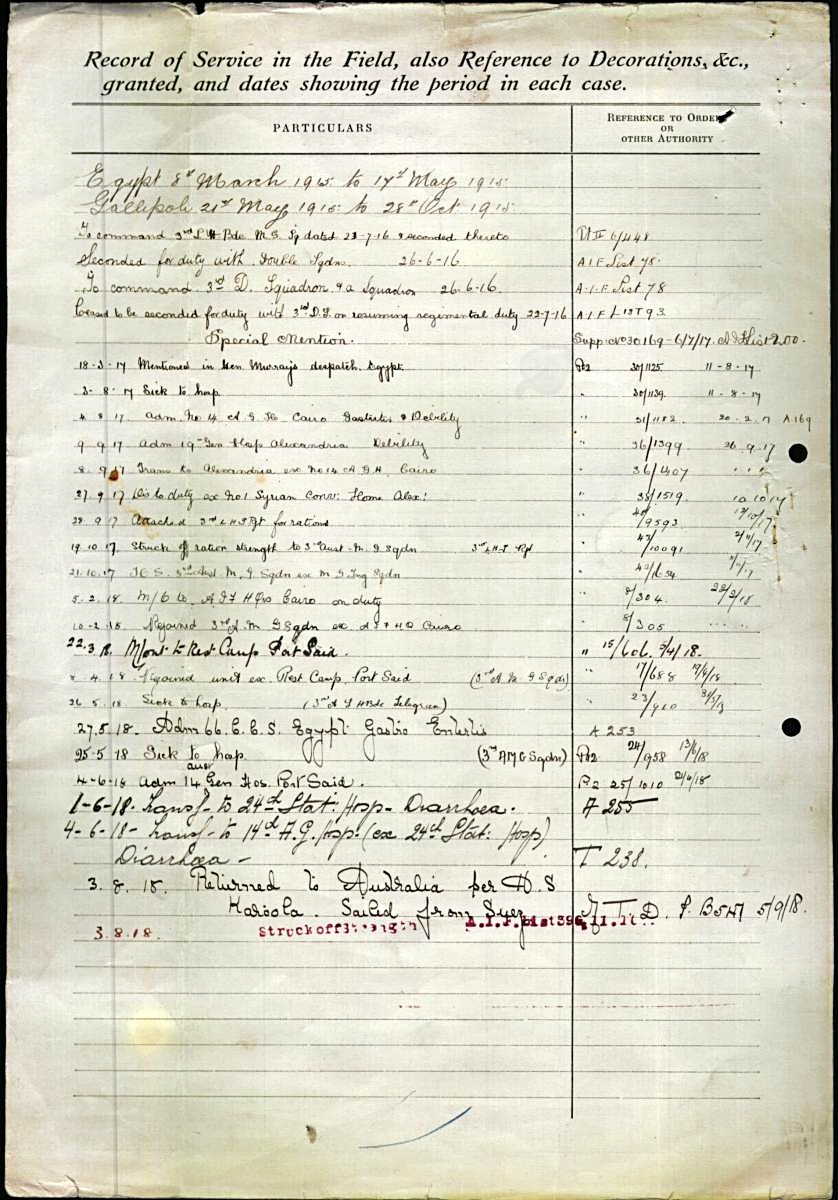 Record of Service in the Field, also Reference to Decorations, &c.,
granted, and dates showing the period in each case.
PARTICULARS
REFERENCE TO ORDER
OR
OTHER AUTHORITY
Egypt 8th March 1915 to 17th May 1915
Gallipoli 21st May 1915 to 28th Oct 1915
To command 3rd L H Bde M.G. Sq dated 23-7-16 & seconded thereto
Seconded for duty with Double Sqdn. 26-6-16. A.I.F List 78.
To command 3rd D. Squadron 9a Squadron 26-6-16. A.I.F List 78
Ceased to be seconded for duty with 3rd D.S. on resuming regimental duty 22-7-16 A I F LIST 93
Special Mention. Supp. No 30169 - 6/7/17. List 200.
18-3-17 Mentioned in Gen Murray's despatch. Egypt. 30/1125 11-8-17
3-8-17 Sick to hosp 30/1139 11-8-17
4 8 17 Adm. No 14 A G H Cairo Gastritis & Debility " 31/1182 A 169
9 9 17 Adm 19 Gen Hosp Alexandria Debility " 36/1399 26.9.17
8. 9 17 Trans to Alexandria exc No 14 A G H. Cairo " 36/1407 " " "
27.9.17 Dis to duty ex No 1 Syrian Conv. Home Alex. 38/1519 10 10 17
28.9.17 Attached 3rd L H Rgt for rations /9593 /10/17
19.10.17. Struck off ration strength to 3rd Aust. M. G Sqdn 3rd L H Rgt " 43/10091
21.10.17 T.O.S. 3rd Aust M. G. Sqdn ex M G Trng Sqdn " 43/
5.2.18. M/O to A I F HQrs Cairo on duty " 8/304 22/2/18
10-2-18. Rejoined 3rd A. M G Sqdn ex A I F H Q Cairo " 8/305
22.3.18. M/out to Rest Camp Port Said. " 15/606. 5/4/18.
8.4.18 Rejoined unit ex. Rest Camp. Port Said (3rd A M G Sqdn) " 17/688 19/4/18
26.5.18. Sick to hosp. (3rd A L H Bde Telegram) 23/910 31/5/18
27.5.18. Adm 66. C.C.S. Egypt Gastro Enteritis A 253
25-5-18 Sick to hosp. (3rd A M G Sqdn) 24/958 13/6/18
4-6-18 Adm 14 Aust Gen Hos. Port Said. 25/1010
1-6-18. Transf- to 24th Stat: Hosp- Diarrhoea. A 255
4-6-18- Transf- to 14th A.G. Hosp. (ex 24th Stat: Hosp)
Diarrhoea - T 238.
3. 8. 18. Returned to Australia per H. S
Karoola. Sailed from Suez T. D. P. B547 5/9/18.
3.8.18. Struck off Strength A.I.F. List 396